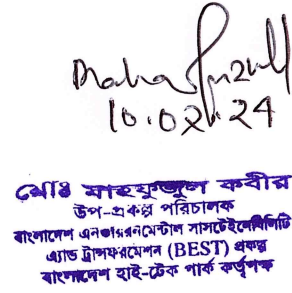 10.02.24
মোঃ মাহফুজুল কবীর
উপ-প্রকল্প পরিচালক
বাংলাদেশ এনভায়রনমেন্টাল সাসটেইনেবিলিটি
এ্যান্ড ট্রান্সফরমেশন (BEST) প্রকল্প
বাংলাদেশ হাই-টেক পার্ক কর্তৃপক্ষ